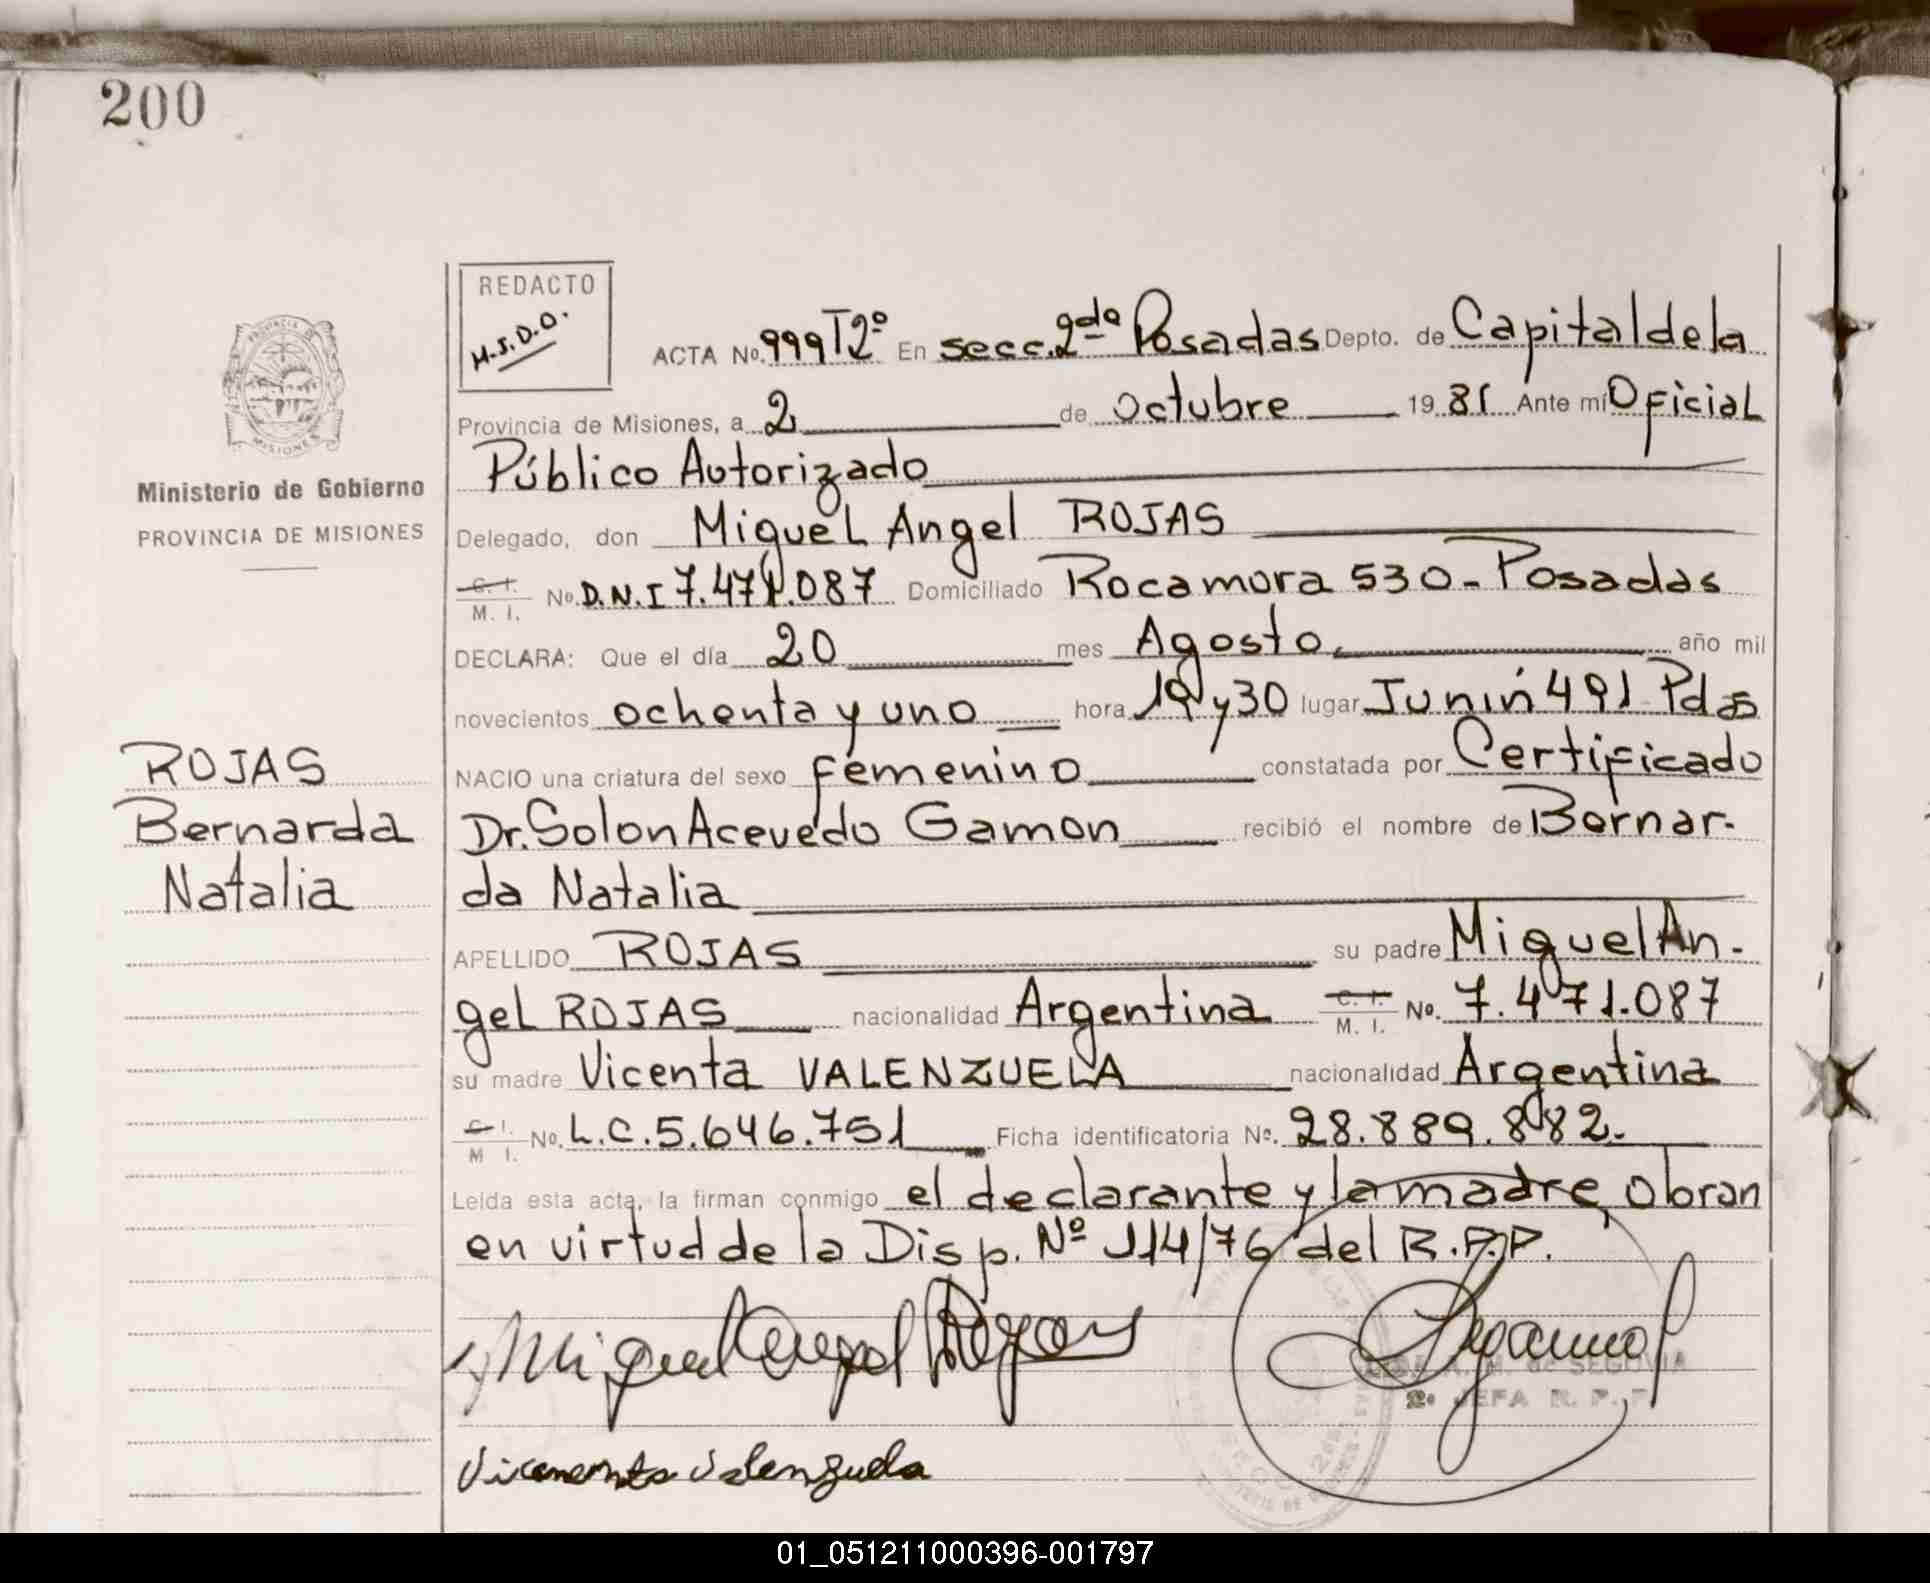 200
REDACTO
M.S.D.O.
ACTA No. 999 T2º En secc. 2da Posadas Depto. de Capital de la
Provincia de Misiones, a 2 de Octubre 1981 Ante mí Oficial
Público Autorizado
Delegado, don Miguel Angel ROJAS
C. I. M. I. No. D.N.I 7.471.087 Domiciliado Rocamora 530 - Posadas
DECLARA: Que el día 20 mes Agosto año mil
novecientos ochenta y uno hora 19 y 30 lugar Junín 491 Pdas
NACIO una criatura del sexo femenino constatada por Certificado
Dr. Solon Acevedo Gamon recibió el nombre de Bernar-
da Natalia
APELLIDO ROJAS su padre Miguel An-
gel ROJAS nacionalidad Argentina C. I. M. I. No. 7.471.087
su madre Vicenta VALENZUELA nacionalidad Argentina
C. I. M. I. No. L.C. 5.646.751 Ficha identificatoria No. 28.889.882.
Leída esta acta, la firman conmigo el declarante y la madre, obran
en virtud de la Disp. Nº 114/76 del R.P.P.
Miguel Angel Rojas
DE SEGOVIA
2º JEFA R. P. P.
Valenzuela
PROVINCIA DE
MISIONES
Ministerio de Gobierno
PROVINCIA DE MISIONES
ROJAS
Bernarda
Natalia
01_051211000396-001797